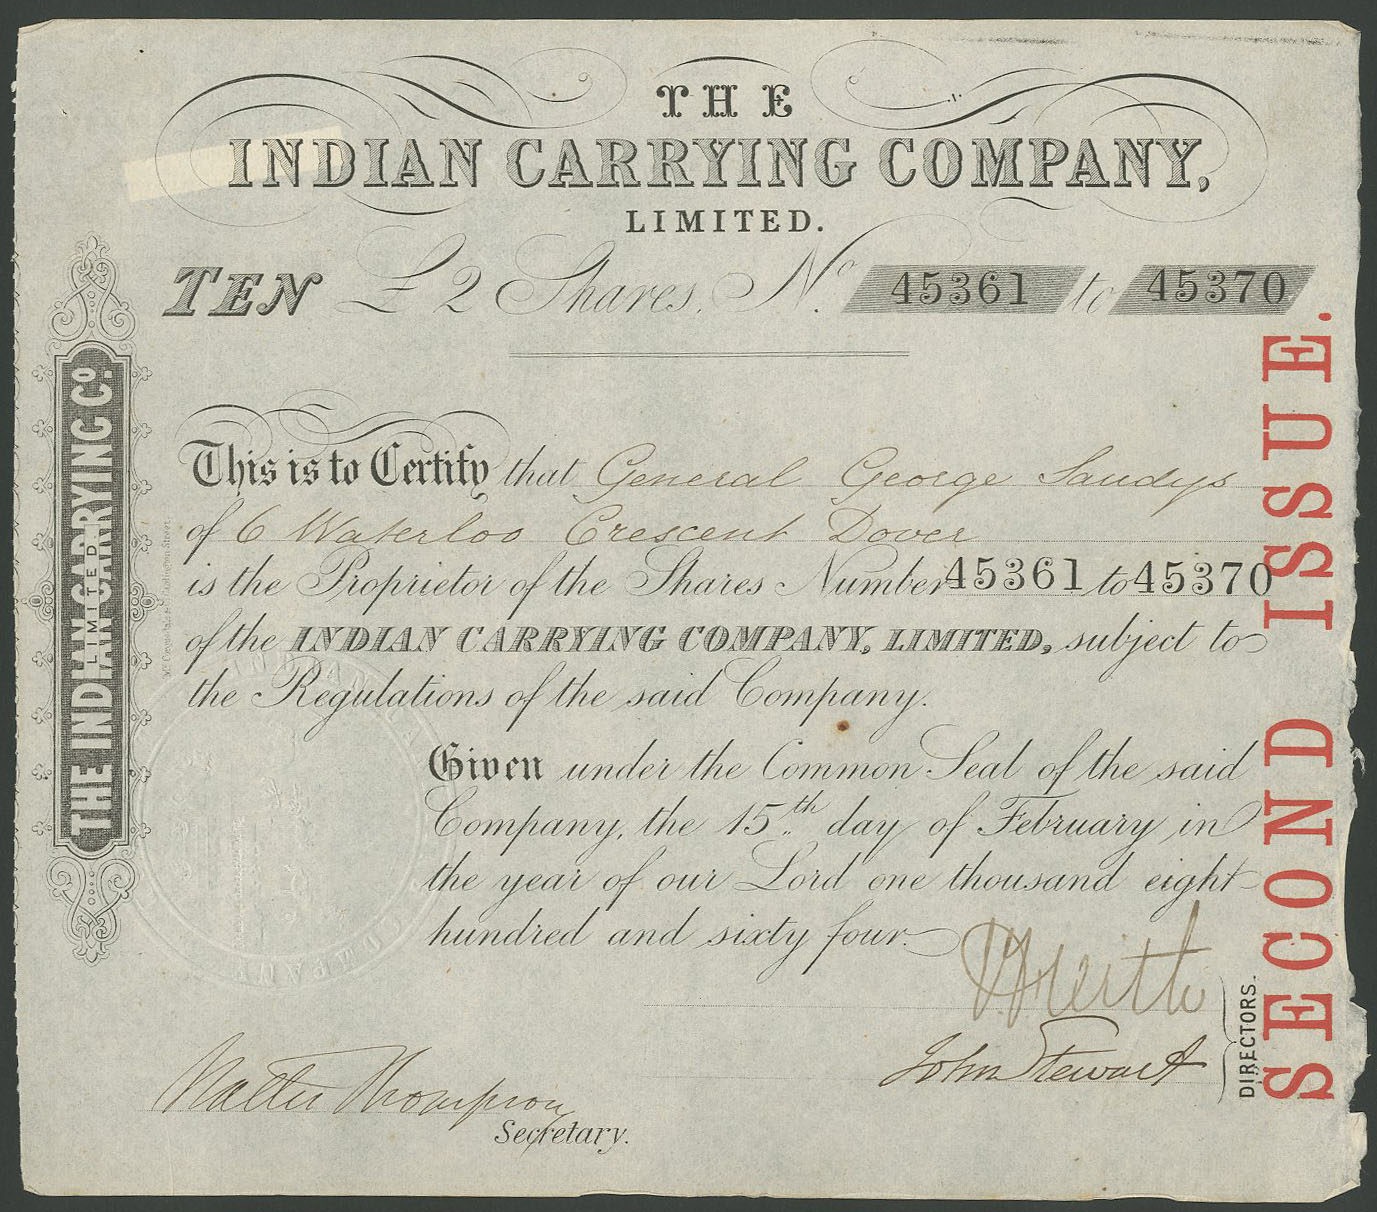 THE
INDIAN CARRYING COMPANY,
LIMITED.
TEN £2 Shares, No. 45361 to 45370
This is to Certify that General George Sandys
of 6 Waterloo Crescent Dover
is the Proprietor of the Shares Number 45361 to 45370
of the INDIAN CARRYING COMPANY, LIMITED, subject to
the Regulations of the said Company.
Given under the Common Seal of the said
Company, the 15th day of February in
the year of our Lord one thousand eight
hundred and sixty four.
John Stewart
DIRECTORS.
Walter Thompson
Secretary.
THE INDIAN CARRYING Co.
LIMITED
SECOND ISSUE.